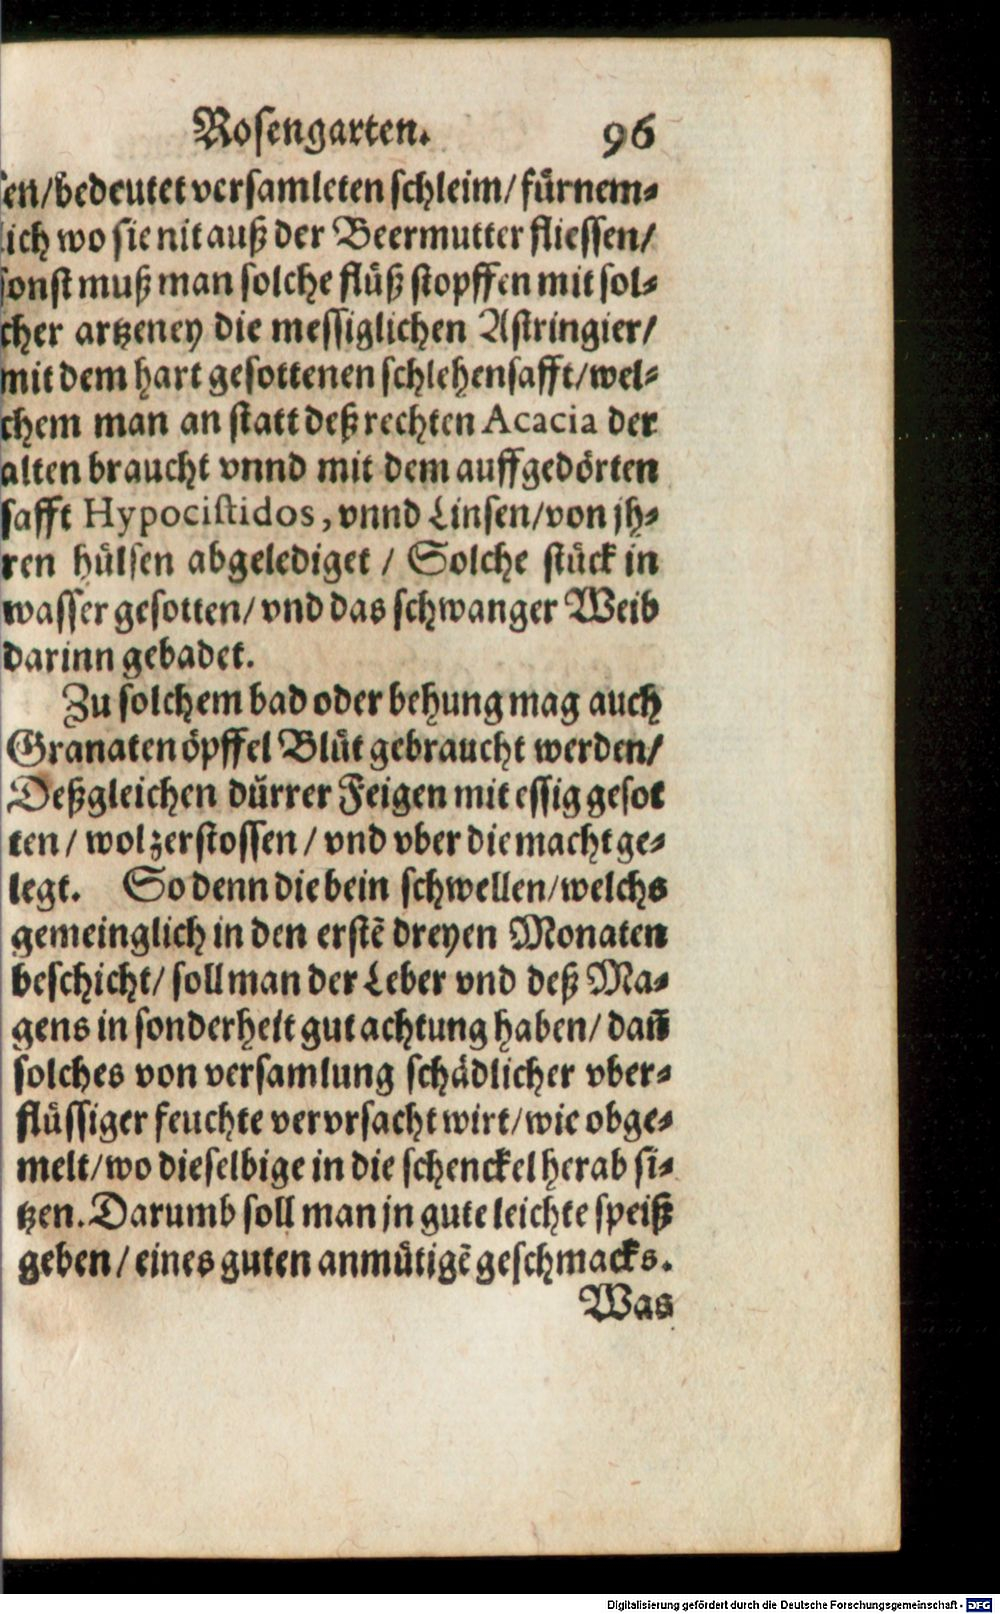 Rosengarten. 96
sen/bedeutet versamleten schleim/fürnem-
lich wo sie nit auß der Beermutter fliessen/
sonst muß man solche flüß stopffen mit sol-
cher artzeney die messiglichen Astringier/
mit dem hart gesottenen schlehensafft/wel-
chem man an statt deß rechten Acacia der
alten braucht vnnd mit dem auffgedörten
safft Hypocistidos, vnnd Linsen/von jh-
ren hülsen abgelediget / Solche stück in
wasser gesotten/ vnd das schwanger Weib
darinn gebadet.
Zu solchem bad oder behung mag auch
Granatenöpffel Blüt gebraucht werden/
Deßgleichen dürrer Feigen mit essig gesot
ten / wol zerstossen / vnd vber die macht ge-
legt. So denn die bein schwellen/welchs
gemeinglich in den erstē dreyen Monaten
beschicht/ soll man der Leber vnd deß Ma-
gens in sonderheit gut achtung haben/ dañ
solches von versamlung schädlicher vber-
flüssiger feuchte vervrsacht wirt/wie obge-
melt/wo dieselbige in die schenckel herab si-
tzen. Darumb soll man jn gute leichte speiß
geben / eines guten anmütigē geschmacks.
Was
Digitalisierung gefördert durch die Deutsche Forschungsgemeinschaft - DFG